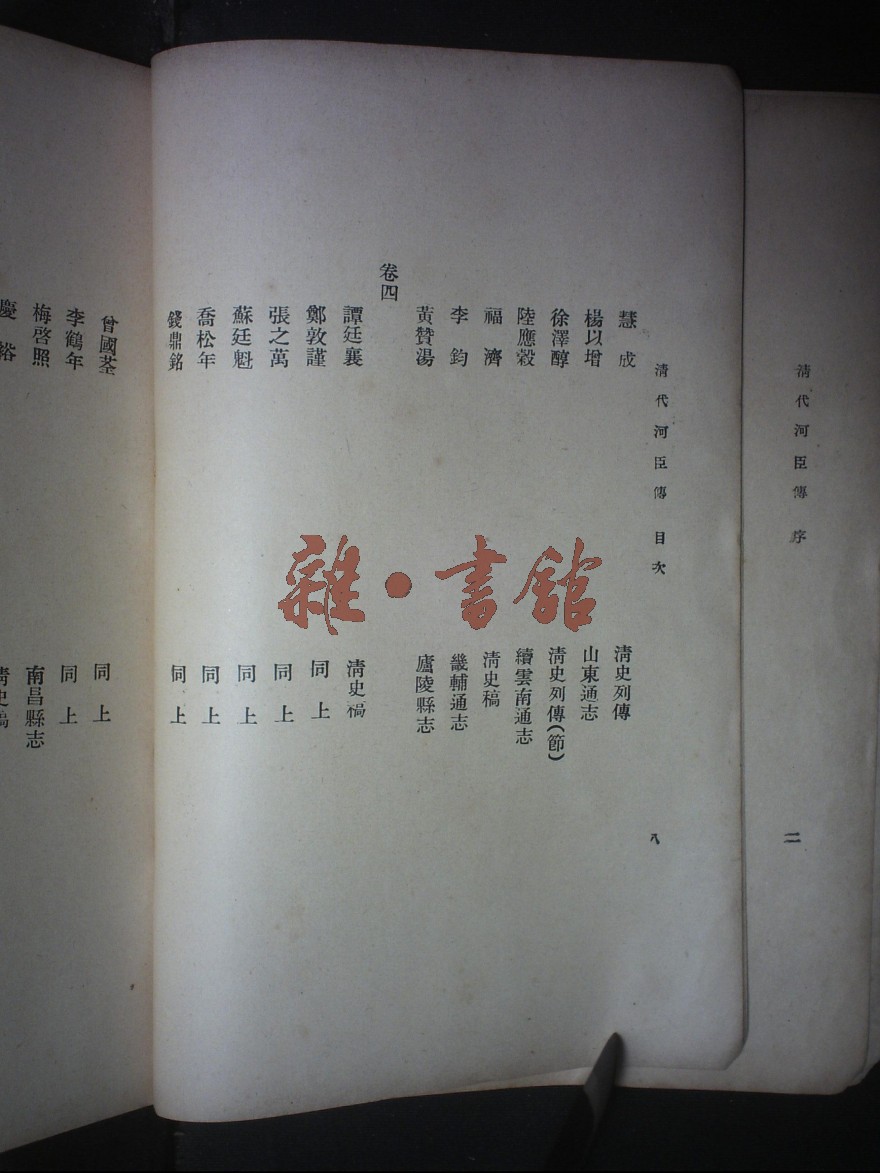 清代河臣傳 序
二
清代河臣傳 目次
八
慧成 清史列傳
楊以增 山東通志
徐澤醇 清史列傳(節)
陸應穀 續雲南通志
福濟 清史稿
李鈞 畿輔通志
黃贊湯 廬陵縣志
卷四
譚廷襄 清史稿
鄭敦謹 同上
張之萬 同上
蘇廷魁 同上
喬松年 同上
錢鼎銘 同上
曾國荃 同上
李鶴年 同上
梅啓照 南昌縣志
慶裕 清史稿
雜·書館